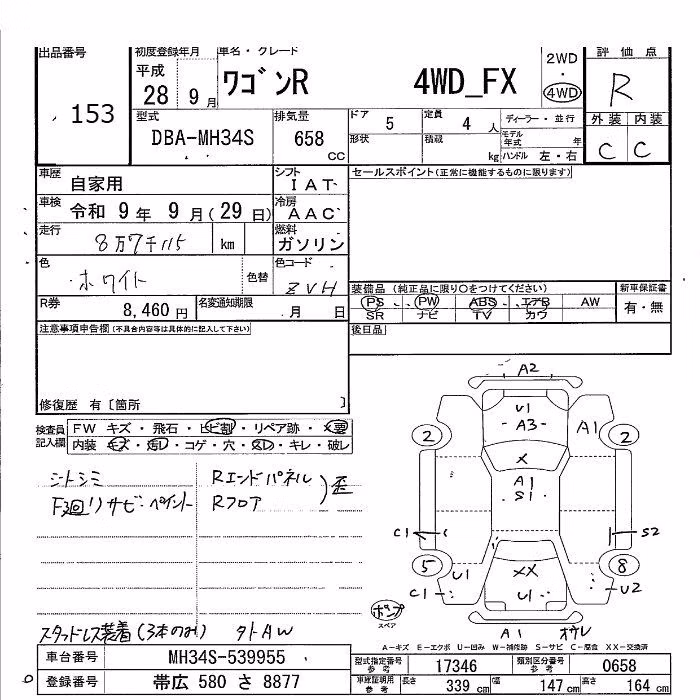 出品番号 153
初度登録年月 平成 28 9 月
車名・グレード ワゴンR 4WD_FX
2WD ・ 4WD
評価点 R
外装 内装
C C
型式 DBA-MH34S
排気量 658 CC
ドア 5
定員 4 人
形状
積載 kg
ディーラー・並行
モデル年式 年
ハンドル 左・右
車歴 自家用
シフト IAT
車検 令和 9 年 9 月(29 日)
冷房 AAC
走行 8万7千115 km
燃料 ガソリン
色 ホワイト 色替
色コード ZVH
R券 8,460 円
名変通知期限 月 日
セールスポイント(正常に機能するものに限ります)
装備品 (純正品に限り○をつけてください)
新車保証書
PS PW ABS エアB AW 有・無
SR ナビ TV カワ
後日品
注意事項申告欄(不具合内容等は具体的に記入して下さい)
修復歴 有〔箇所 〕
検査員記入欄
FW キズ・飛石・ヒビ割・リペア跡・×要
内装 キズ・汚れ・コゲ・穴・スレ・キレ・破レ
シトシミ
F3廻リサビ・ペイント
Rエンドパネル
Rフロア
歪
スタッドレス装着(3本のみ) タトAW
A2
U1
A3
A1
2 2
X
A1
S1
C1 S2
5 8
U1 XX U2
C1 U1
ポンプ
スペア
A1 オウレ
A-キズ E-エクボ U-凹み W-補修跡 S-サビ C-腐食 XX-交換済
車台番号 MH34S-539955
登録番号 帯広 580 さ 8877
型式指定番号 参考 17346
類別区分番号 参考 0658
車庫証明用 参考 長さ 339 cm 幅 147 cm 高さ 164 cm